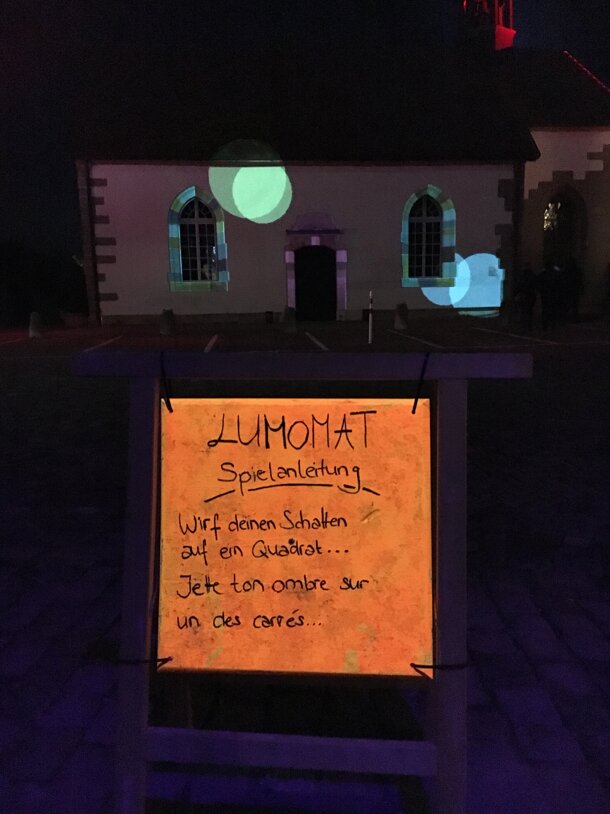 LUMOMAT
Spielanleitung
Wirf deinen Schatten
auf ein Quadrat...
Jette ton ombre sur
un des carrés...